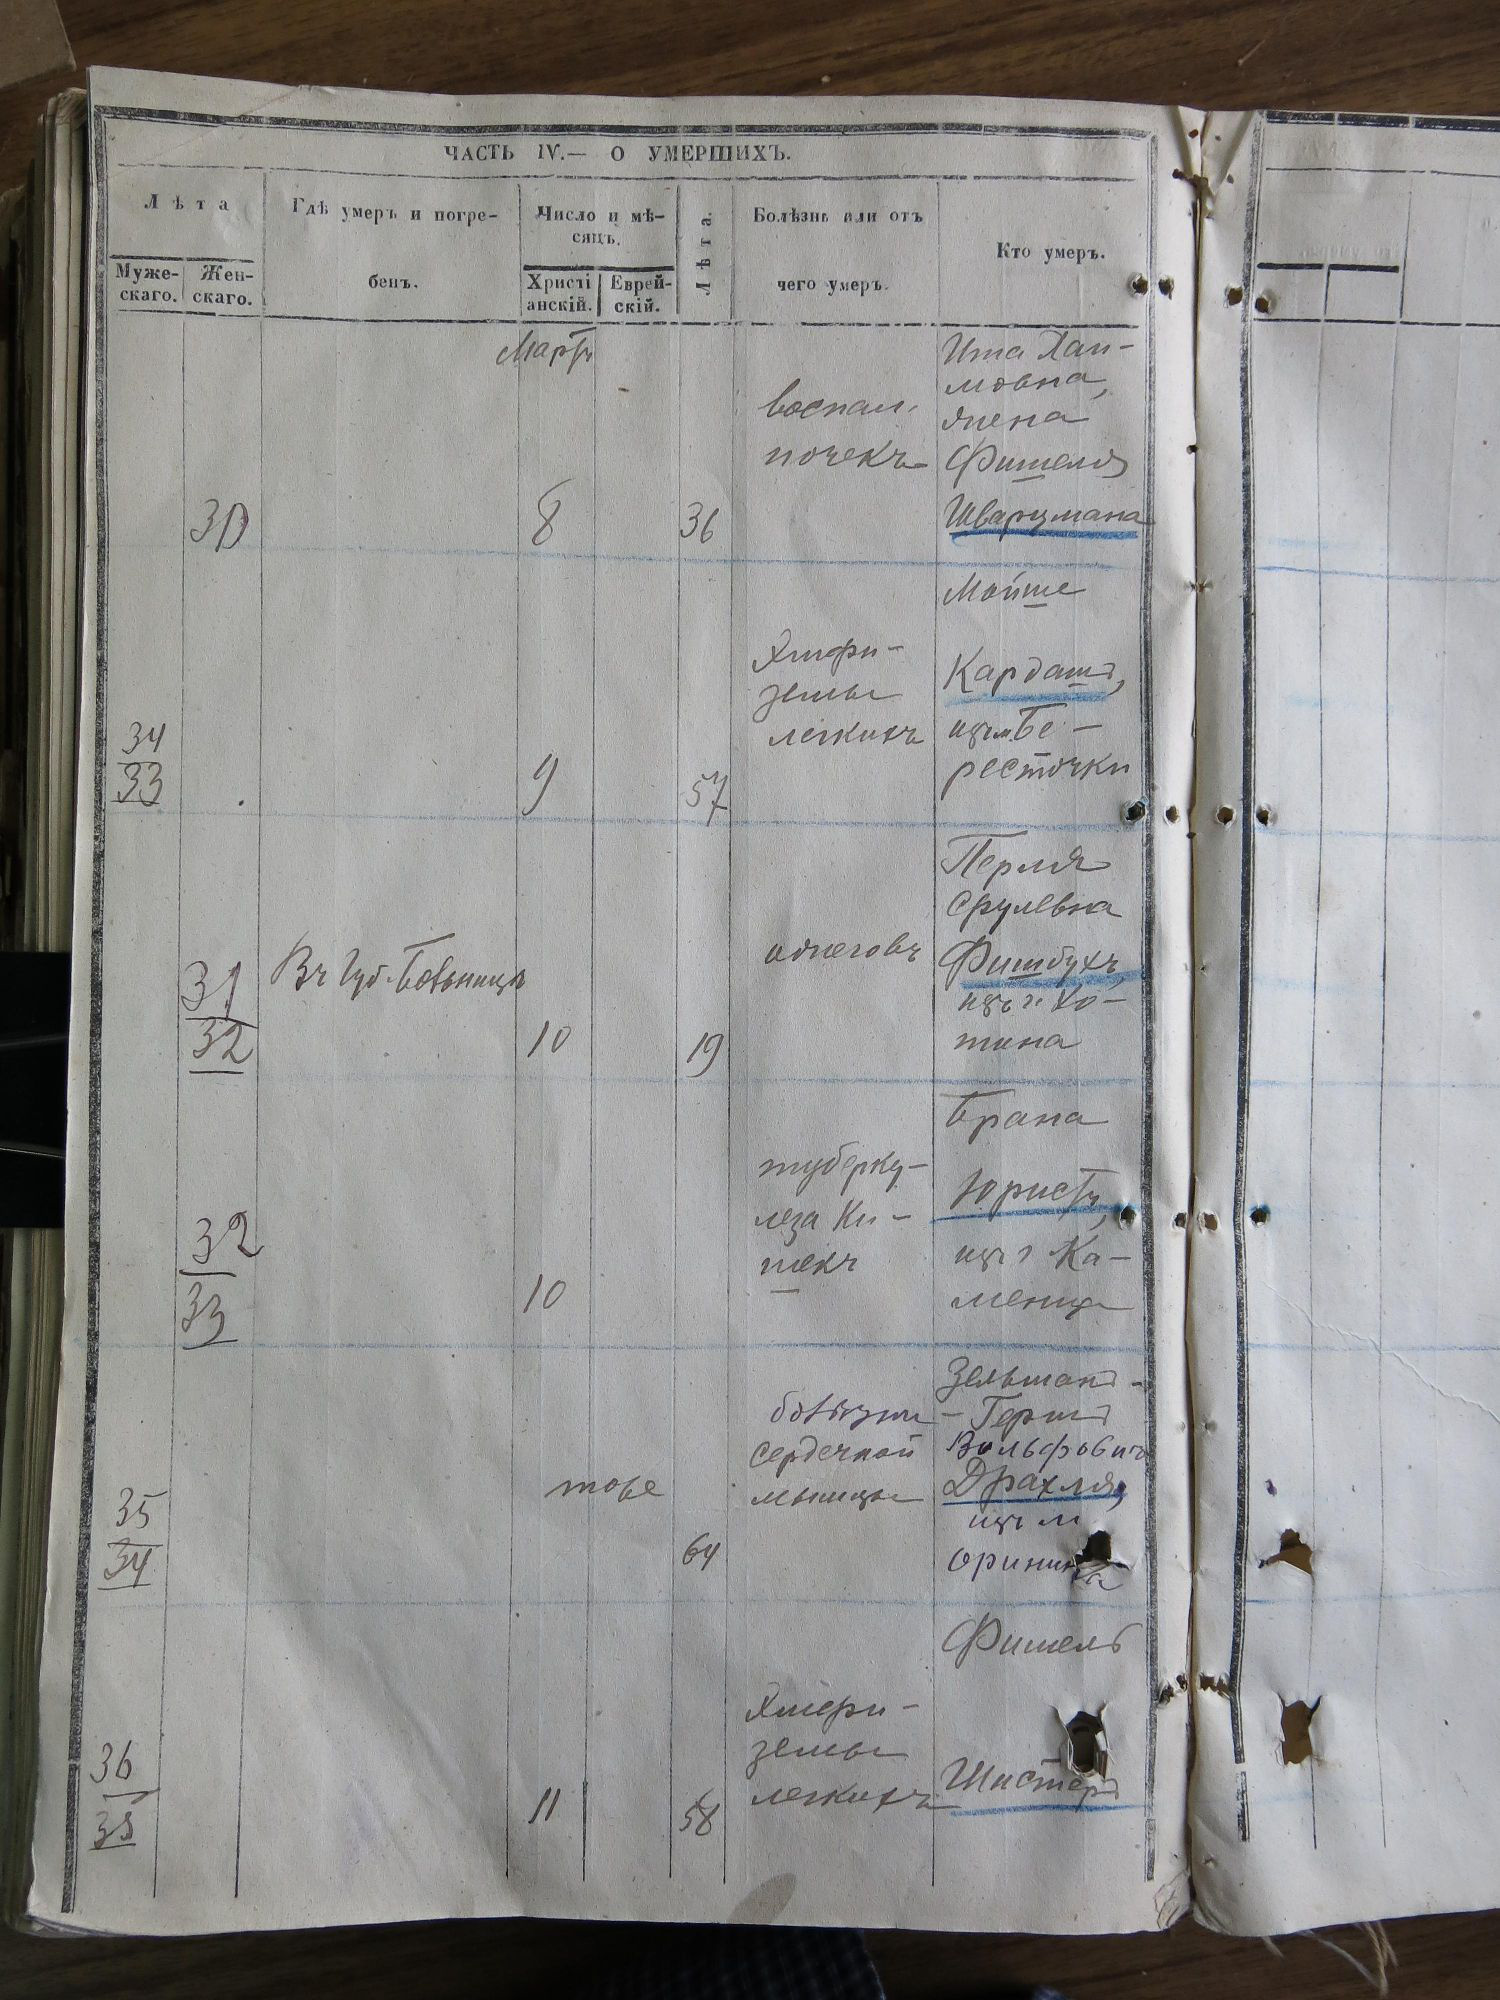 ЧАСТЬ IV.— О УМЕРШИХЪ.
Лѣта
Муже-
скаго.
Жен-
скаго.
Гдѣ умеръ и погре-
бенъ.
Число и мѣ-
сяцъ.
Христі
анскій.
Еврей-
скій.
Лѣта.
Болѣзнь или отъ
чего умеръ.
Кто умеръ.
Мартъ
30
8
36
воспал.
почекъ
Ита Хаи-
мовна,
жена
Фишеля
Шварцмана
34
33
9
57
Эмфи-
земы
легкихъ
Мойше
Кардашъ,
изъ м. Бе-
ресточки
31
32
Въ Губ. Больницѣ
10
19
ожеговъ
Перля
Срулевна
Фишбухъ,
изъ г. Хо-
тина
32
33
10
туберку-
леза Ки-
шекъ
Брана
Юристъ,
изъ г Ка-
менца
35
34
тоже
64
болѣзни
сердечной
мышцы
Зельман-
-Герш
Вольфовичъ
Драхля,
изъ м
Оринина
36
35
11
58
Эмфи-
земы
легкихъ
Фишель
Шистеръ